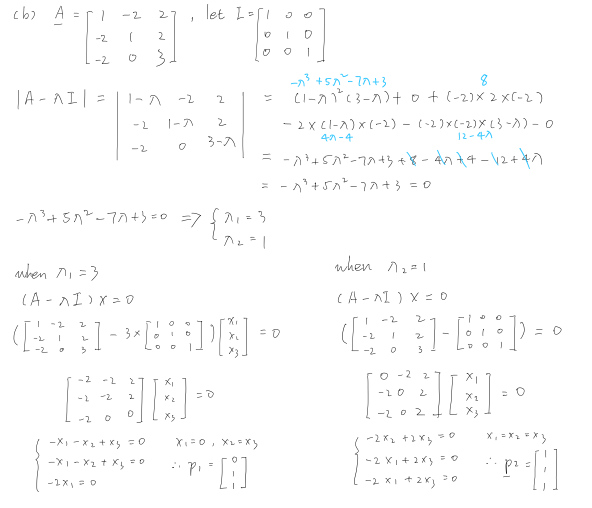 (b) A = [1 -2 2; -2 1 2; -2 0 3], let I = [1 0 0; 0 1 0; 0 0 1]
-λ³+5λ²-7λ+3 8
|A-λI| = |1-λ -2 2; -2 1-λ 2; -2 0 3-λ| = (1-λ)²(3-λ) + 0 + (-2)×2×(-2)
- 2×(1-λ)×(-2) - (-2)×(-2)×(3-λ) - 0
4λ-4 12-4λ
= -λ³+5λ²-7λ+3+8-4λ+4-12+4λ
= -λ³+5λ²-7λ+3 = 0
-λ³+5λ²-7λ+3=0 => { λ₁ = 3
λ₂ = 1
when λ₁ = 3
(A-λI)x=0
([1 -2 2; -2 1 2; -2 0 3] - 3×[1 0 0; 0 1 0; 0 0 1])[x₁; x₂; x₃] = 0
[-2 -2 2; -2 -2 2; -2 0 0][x₁; x₂; x₃] = 0
{ -x₁-x₂+x₃ = 0 x₁=0, x₂=x₃
-x₁-x₂+x₃ = 0 ∴ p₁ = [0; 1; 1]
-2x₁ = 0
when λ₂ = 1
(A-λI)x=0
([1 -2 2; -2 1 2; -2 0 3] - [1 0 0; 0 1 0; 0 0 1]) = 0
[0 -2 2; -2 0 2; -2 0 2][x₁; x₂; x₃] = 0
{ -2x₂+2x₃ = 0 x₁=x₂=x₃
-2x₁+2x₃ = 0 ∴ p₂ = [1; 1; 1]
-2x₁+2x₃ = 0